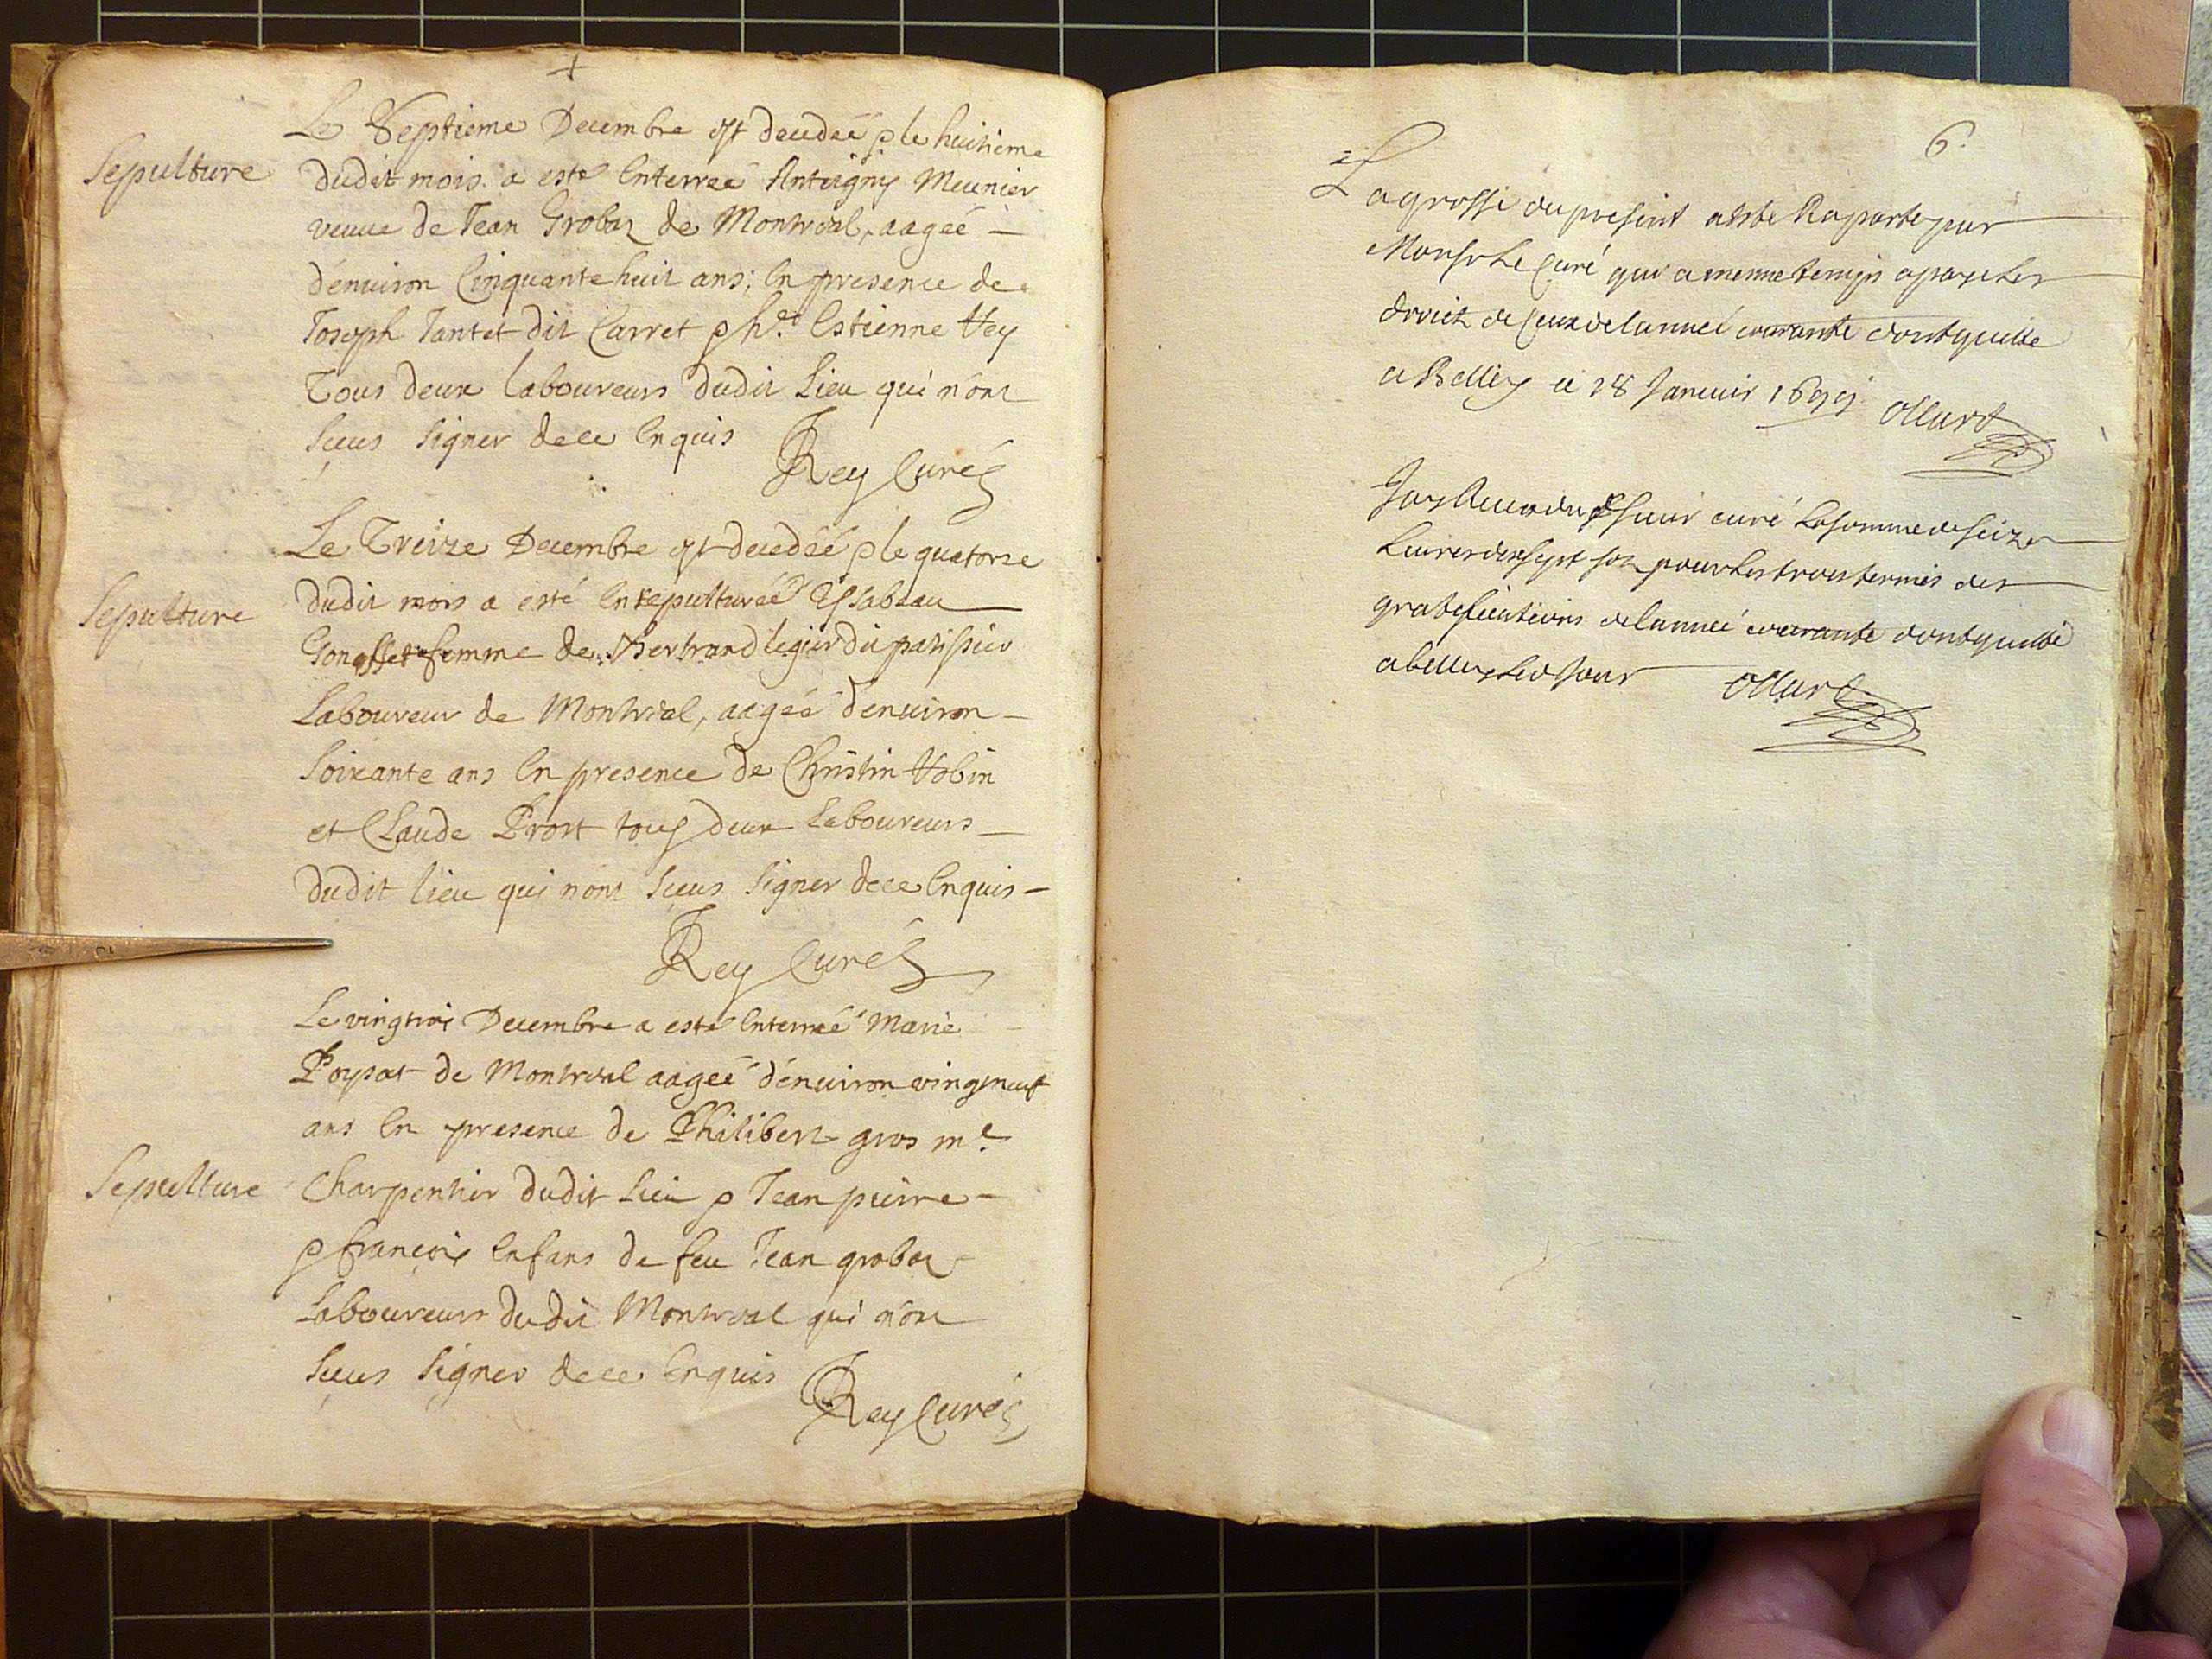 +
Le Septieme Decembre est decedeé & le huitieme
Sepulture
dudit mois a esté Enterreé Meunier
veuve de Jean Grobaz de Montreal, aageé
d'enuiron Cinquante huit ans; En presence de
Joseph Tantet dit Carret & Estienne Vey
Tous deux laboureurs dudit Lieu qui n'ont
sceus signer de ce Enquis
Rey Curé
Le Treize Decembre est decedeé & le quatorze
Sepulture
dudit mois a esté Ensepultureé Essabeau
femme de Bertrand legier dit patissier
Laboureur de Montreal, aageé d'enuiron
soixante ans En presence de Christin Vobin
et Claude Prost tous deux Laboureurs
dudit lieu qui n'ont sceus signer de ce Enquis
Rey Curé
Le vingtrois Decembre a esté Enterreé Marie
Poypat de Montreal aageé d'enuiron vingtneuf
ans En presence de Philibert gros me
Sepulture
Charpentier dudit Lieu & Jean pierre
& françois Enfans de feu Jean grobaz
Laboureurs dudit Montreal qui n'ont
sceus signer de ce Enquis
Rey Curé
6.
La grosse du present a esté Raporté par
Monsr Le Curé qui a mesme temps a payé les
droict de Ceux de lanneé courante dont quitte
a Belley ce 18 Januier
Jay Receu du sieur curé La somme de seize
Liures dixsept sols pour les trois termes des
gratifications de lanneé courante dont quitté
a belley Led Jour